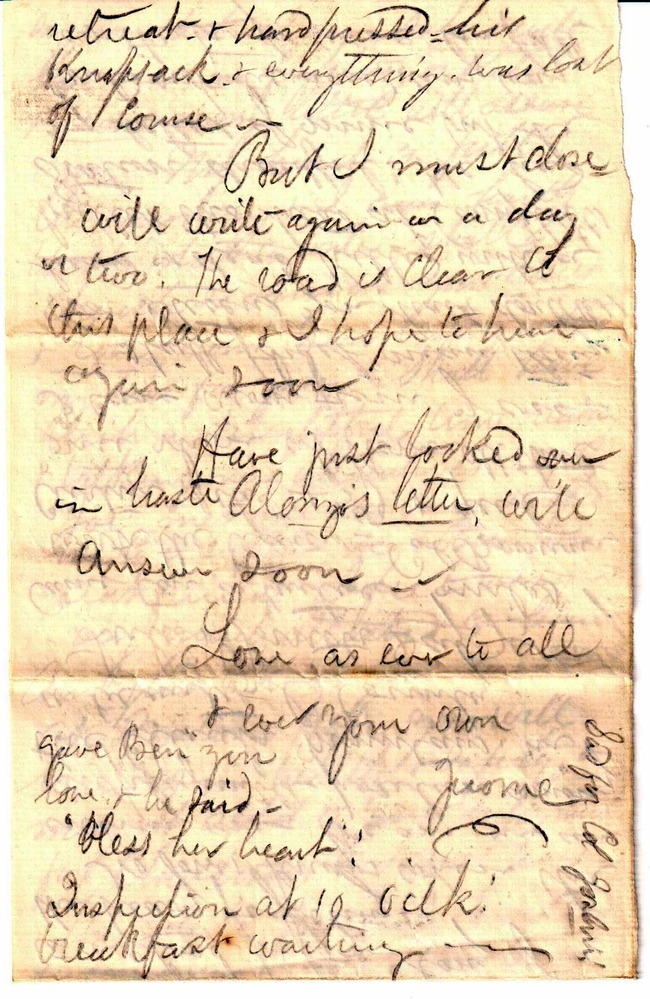 retreat - & hard pressed - his
Knapsack - & everything - was lost
of course —
But I must close
will write again in a day
or two. The road is clear to
this place & I hope to hear
again soon
Have just looked over
in haste Alonzo's letter, will
answer soon —
Love as ever to all
& ever your own
Jerome
gave Ben" your
love & he said -
"Bless her heart"!
Inspection at 10 Oclk!
breakfast waiting —